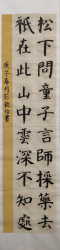 松下問童子言師採藥去
衹在此山中雲深不知處